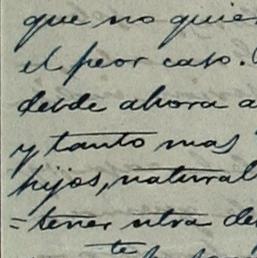 que no quie
el peor caso.
desde ahora a
y tanto mas
hijos, natural
=tener ntra de
te